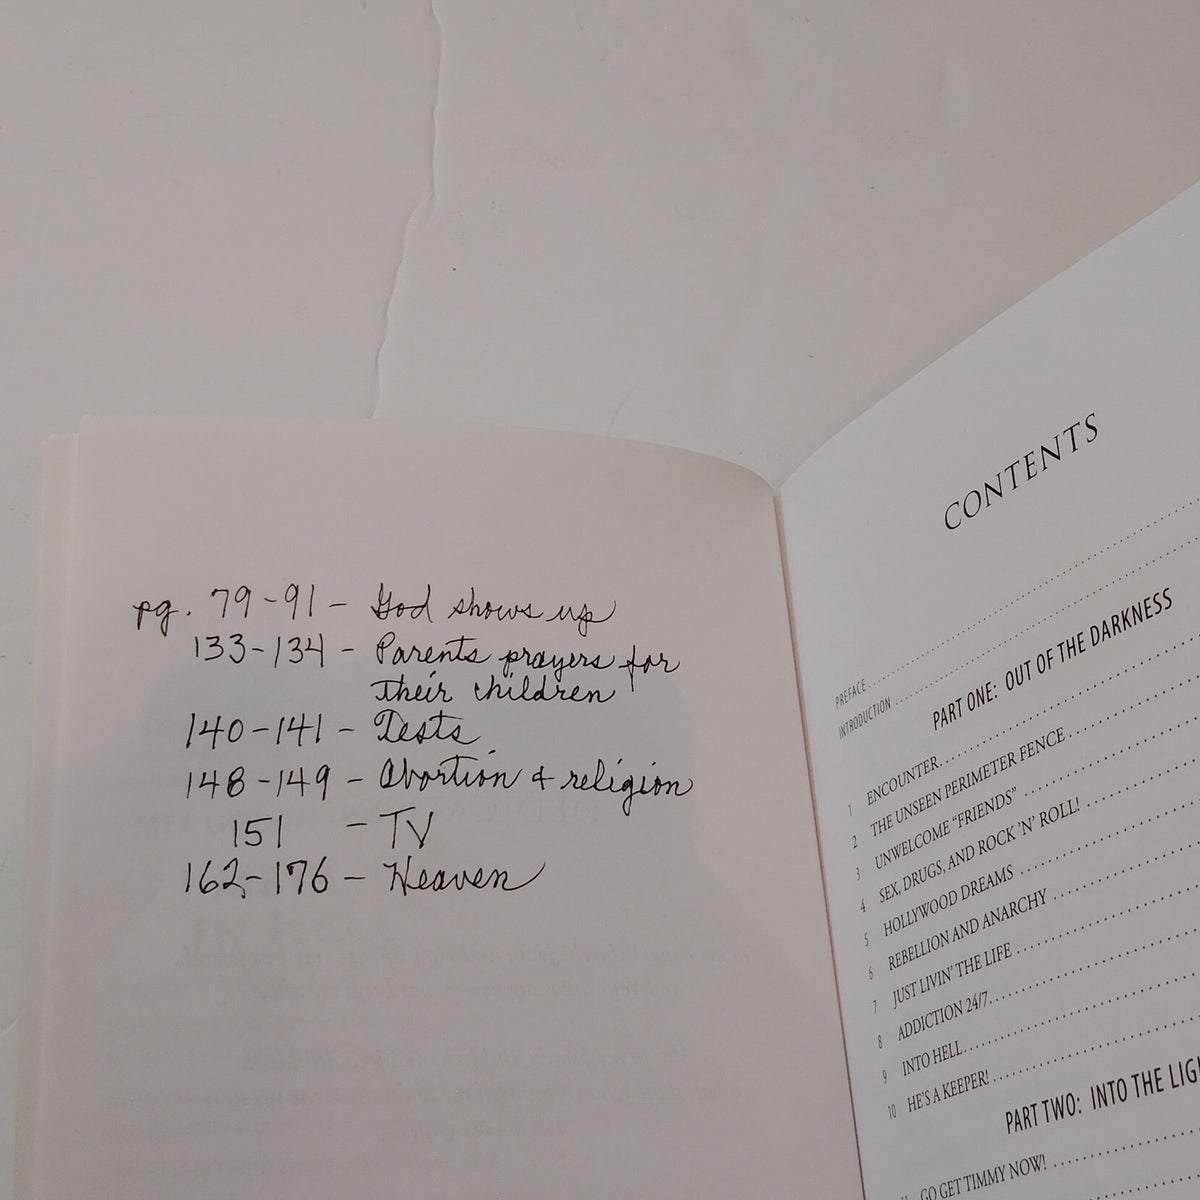 pg. 79-91 - God shows up
133-134 - Parents prayers for
their children
140-141 - Tests
148-149 - Abortion & religion
151 - TV
162-176 - Heaven
CONTENTS
PREFACE
INTRODUCTION
PART ONE: OUT OF THE DARKNESS
1 ENCOUNTER
2 THE UNSEEN PERIMETER FENCE
3 UNWELCOME "FRIENDS"
4 SEX, DRUGS, AND ROCK 'N' ROLL!
5 HOLLYWOOD DREAMS
6 REBELLION AND ANARCHY
7 JUST LIVIN' THE LIFE
8 ADDICTION 24/7
9 INTO HELL
10 HE'S A KEEPER!
PART TWO: INTO THE LIGH
11 GO GET TIMMY NOW!